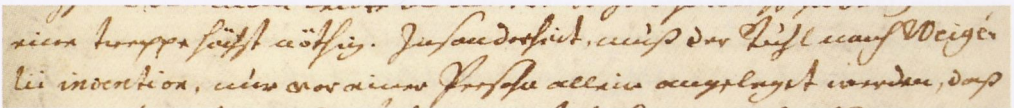 eine treppe höchst nöthig. Insonderheit, muß der Stuhl nach Weige-
lii invention, nur vor einer Persohn allein angeleget werden, daß